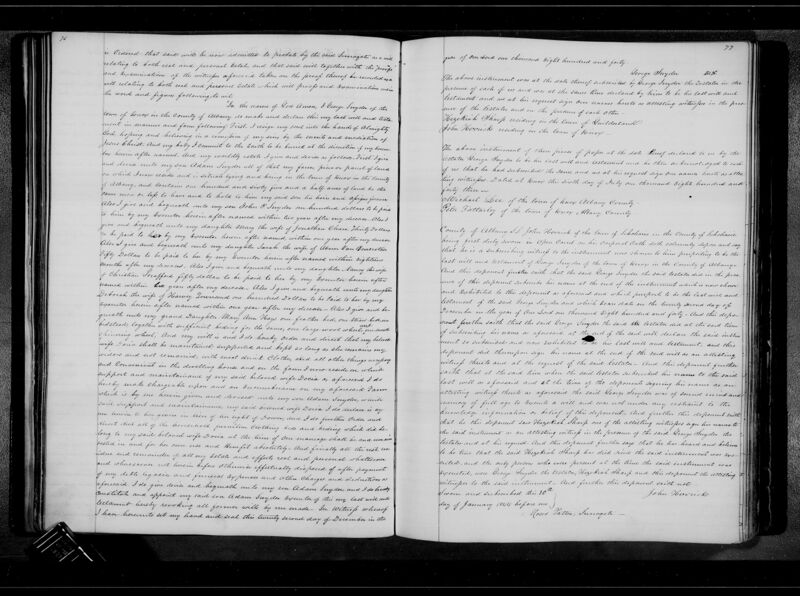 76
is Ordered that said will be now admitted to probate by the said Surrogate as a will
relating to both real and personal Estate and that said will together with the proofs
and examination of the witnesses aforesaid taken on the proof thereof be recorded as a
will relating to both real and personal estate which will proofs and examination were in
the words and figures following to wit
In the name of God Amen, I George Snyder of the
town of Knox in the County of Albany do make and declare this my last will and testa
ment in manner and form following First I resign my soul into the hands of Almighty
God hoping and believing in a remission of my sins by the merits and mediation of
Jesus Christ. And my body I commit to the Earth to be buried at the direction of my Execu
tor herein after named. And my worldly estate I give and devise as follows. First I give
and devise unto my son Adam Snyder all of that my farm piece or parcel of land
on which I now reside and is situate lying and being in the town of Knox in the County
of Albany, and contains one hundred and sixty five and a half acres of land be the
same more or less to have and to hold to him my said son his heirs and assigns forever
Also I give and bequeath unto my son John P Snyder one hundred dollars to be paid
to him by my Executor herein after named within two years after my decease. Also I
give and bequeath unto my daughter Mary the wife of Jonathan Chase Thirty Dollars
to be paid to her by my Executor herein after named within one year after my decease
Also I give and bequeath unto my daughter Sarah the wife of
Fifty Dollars to be paid to her by my Executor herein after named within eighteen
months after my decease. Also I give and bequeath unto my daughter Nancy the wife
of Christian Strafford fifty dollars to be paid to her by my Executor herein after
named within year after my decease. Also I give and bequeath unto my daughter
Deborah the wife of Harvey one hundred Dollars to be paid to her by my
Executor herein after named within one year after my decease. Also I give and be
queath unto my grand Daughter Mary Ann Hays one feather bed, one
bedstead together with sufficient bedding for the same, one large wool wheel, and one small
spinning wheel. And my will is and I do hereby order and direct that my beloved
wife Doria shall be maintained supported and kept so long as she remains my
widow and not remarried, with meat drink Clothes and all other things necessary
and Convenient in the dwelling house and on the farm I now reside on which
support and maintainance of my said beloved wife Doria as aforesaid I do
hereby make chargeable upon and an Encumbrance on my aforesaid Farm
which is by me herein given and devised unto my son Adam Snyder, which
said support and maintainance my said second wife Doria I do declare is by
me given to her given in lieu of her right of Dower, And I do further Order and
direct that all of the household furniture Clothing bed and beding which did be
long to my said beloved wife Doria at the time of our marriage shall be and remain
vested in and for her own use and benefit absolutely. And finally all the rest resi
due and remainder of all my estate and effects real and personal whatsoever
and wheresoever not herein before otherwise effectually disposed of after payment
of my debts legacies and funeral Expenses and other Charges and deductions as
aforesaid I do give devise and bequeath unto my son Adam Snyder, and I do hereby
Constitute and appoint my said son Adam Snyder Executor of this my last will and
testament hereby revoking all former wills by me made. In Witness whereof
I have hereunto set my hand and seal this twenty second day of December in the
77
year of our Lord one thousand Eight hundred and forty
George Snyder L.S.
The above instrument was at the date thereof subscribed by George Snyder the Testator in the
presence of each of us and was at the same time declared by him to be his last will and
testament and we at his request sign our names hereto as attesting witnesses in the pres
ence of the testator and in the presence of each other
Hezekiah Sharp residing in the town of Guilderland
John Hovrick residing in the town of Knox
The above instrument of three pieces of paper at the date thereof declared to us by the
testator George Snyder to be his last will and testament and he then acknowledged to each
of us that he had subscribed the same and we at his request sign our names hereto as attes
ting witnesses. Dated at Knox the sixth day of July one thousand Eight hundred and
forty three
Michael Dee of the town of Knox Albany County
Peter Pattarley of the town of Knox Albany County
County of Albany SS. John Hovrick of the town of Schoharie in the County of Schoharie
being first duly sworn in Open Court on his Corporal Oath doth solemnly depose and say
that he is a subscribing witness to the instrument now shown to him purporting to be the
last will and testament of George Snyder of the town of Knox in the County of Albany
And this deponent further saith that the said George Snyder the said Testator did in the pres
ence of this deponent subscribe his name at the end of the instrument which is now shown
and exhibited to this deponent as aforesaid and which purports to be the last will and
testament of the said George Snyder and which bears date on the twenty second day of
December in the year of Our Lord one thousand Eight hundred and forty. And this depo
nent further saith that the said George Snyder the said testator did at the said time
of subscribing his name as aforesaid at the end of the said will declare the said instru
ment so subscribed and now exhibited to be his last will and testament, and this
deponent did thereupon sign his name at the end of the said will as an attesting
witness thereto and at the request of the said testator. And this deponent further
saith that at the said time when the said testator subscribed his name to the said
last will as aforesaid and at the time of the deponents signing his name as an
attesting witness thereto as aforesaid the said George Snyder was of sound mind and
memory of full age to Execute a will and was not under any restraint to the
knowledge information or belief of this deponent. And further this deponent saith
that he this deponent saw Hezekiah Sharp one of the attesting witnesses sign his name to
the said instrument as an attesting witness in the presence of the said George Snyder the
testator and at his request. And this deponent further says that he has heard and believes
to be true that the said Hezekiah Sharp has died since the said instrument was exe
cuted, and the only persons who were present at the time the said instrument was
executed, were George Snyder the testator Hezekiah Sharp and this deponent the attesting
witnesses to the said instrument. And further this deponent saith not
Sworn and subscribed this 10th John Hovrick
day of January 1844 before me
Moses Patten, Surrogate